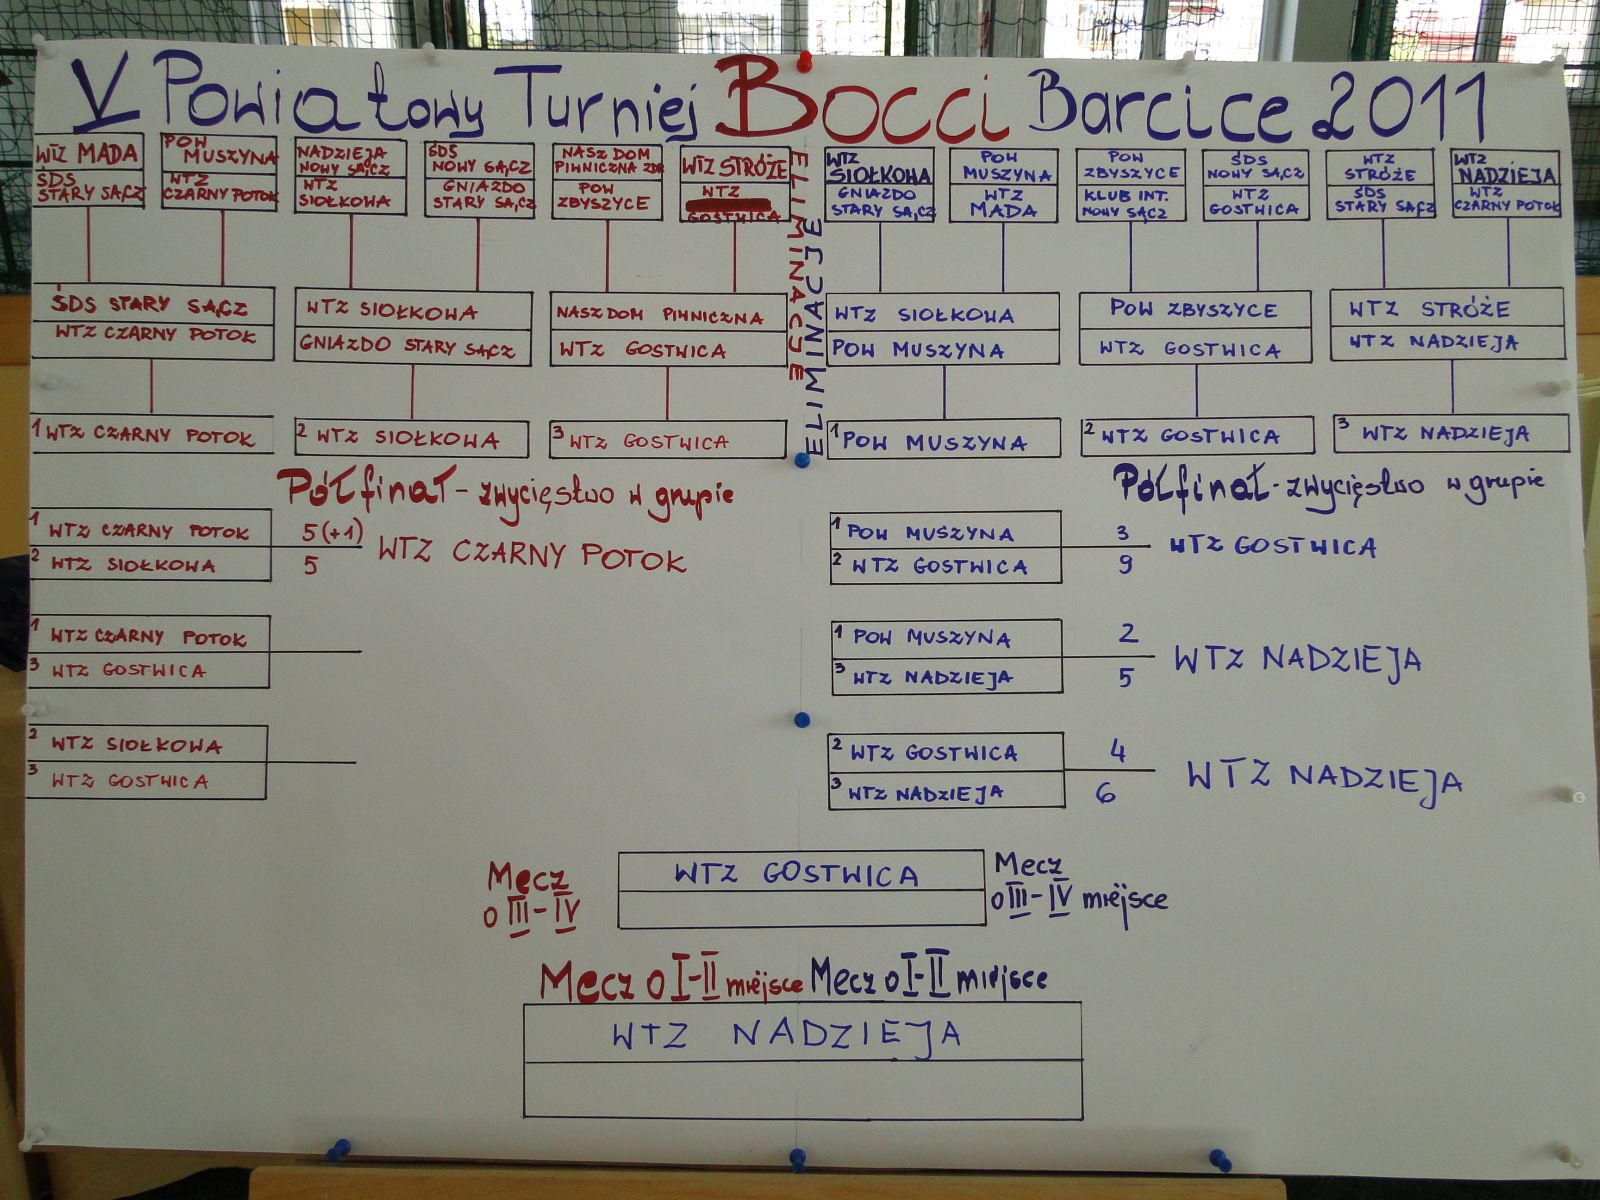 V Powiatowy Turniej Bocci Barcice 2011
WTZ MADA
ŚDS STARY SĄCZ
POW MUSZYNA
WTZ CZARNY POTOK
NADZIEJA NOWY SĄCZ
WTZ SIOŁKOWA
ŚDS NOWY SĄCZ
GNIAZDO STARY SĄCZ
NASZ DOM PIWNICZNA ZDR
POW ZBYSZYCE
WTZ STRÓŻE
WTZ GOSTWICA
ELIMINACJE
ELIMINACJE
WTZ SIOŁKOWA
GNIAZDO STARY SĄCZ
POW MUSZYNA
WTZ MADA
POW ZBYSZYCE
KLUB INT. NOWY SĄCZ
ŚDS NOWY SĄCZ
WTZ GOSTWICA
WTZ STRÓŻE
ŚDS STARY SĄCZ
WTZ NADZIEJA
WTZ CZARNY POTOK
ŚDS STARY SĄCZ
WTZ CZARNY POTOK
WTZ SIOŁKOWA
GNIAZDO STARY SĄCZ
NASZ DOM PIWNICZNA
WTZ GOSTWICA
WTZ SIOŁKOWA
POW MUSZYNA
POW ZBYSZYCE
WTZ GOSTWICA
WTZ STRÓŻE
WTZ NADZIEJA
1 WTZ CZARNY POTOK
2 WTZ SIOŁKOWA
3 WTZ GOSTWICA
1 POW MUSZYNA
2 WTZ GOSTWICA
3 WTZ NADZIEJA
Półfinał - zwycięstwo w grupie
1 WTZ CZARNY POTOK 5(+1)
2 WTZ SIOŁKOWA 5
WTZ CZARNY POTOK
1 WTZ CZARNY POTOK
3 WTZ GOSTWICA
2 WTZ SIOŁKOWA
3 WTZ GOSTWICA
Półfinał - zwycięstwo w grupie
1 POW MUSZYNA 3
2 WTZ GOSTWICA 9
WTZ GOSTWICA
1 POW MUSZYNA 2
3 WTZ NADZIEJA 5
WTZ NADZIEJA
2 WTZ GOSTWICA 4
3 WTZ NADZIEJA 6
WTZ NADZIEJA
Mecz
o III-IV
WTZ GOSTWICA
Mecz
o III-IV miejsce
Mecz o I-II miejsce Mecz o I-II miejsce
WTZ NADZIEJA